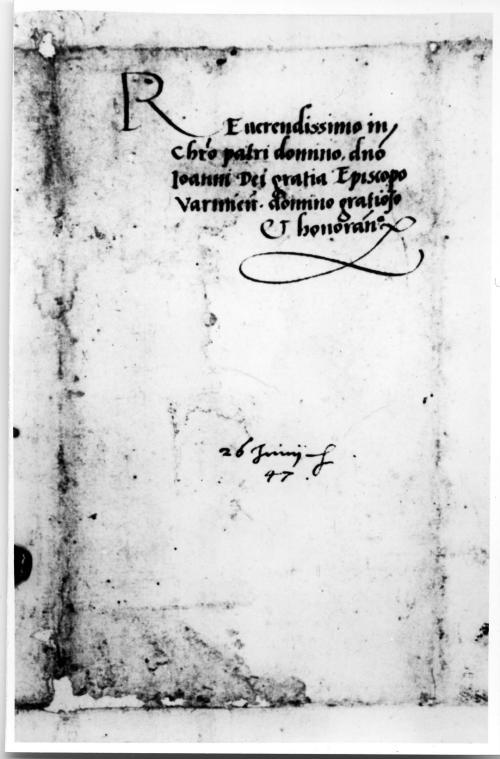 REuerendissimo in
Chro patri domino, dnó
Ioanni Dei gratia Episcopo
Varmien. domino gratioso
Et honorán.
26 Junij
47